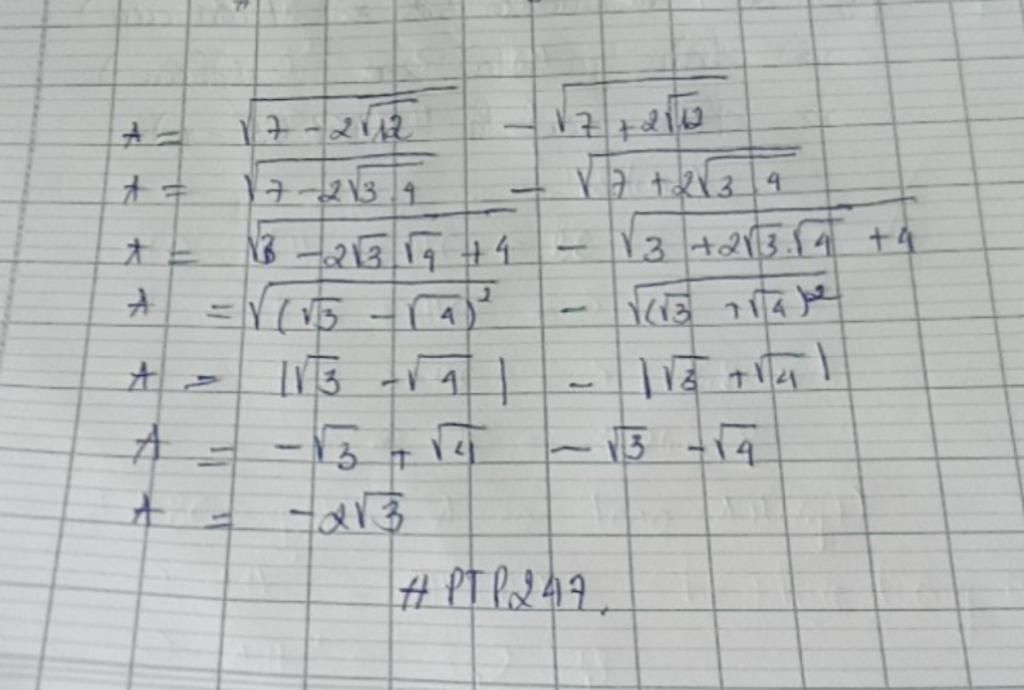 A = √(7 - 2√12) - √(7 + 2√12)
A = √(7 - 2√3.4) - √(7 + 2√3.4)
A = √(3 - 2√3.√4 + 4) - √(3 + 2√3.√4 + 4)
A = √((√3 - √4)²) - √((√3 + √4)²)
A = |√3 - √4| - |√3 + √4|
A = -√3 + √4 - √3 - √4
A = -2√3
#PTP247.